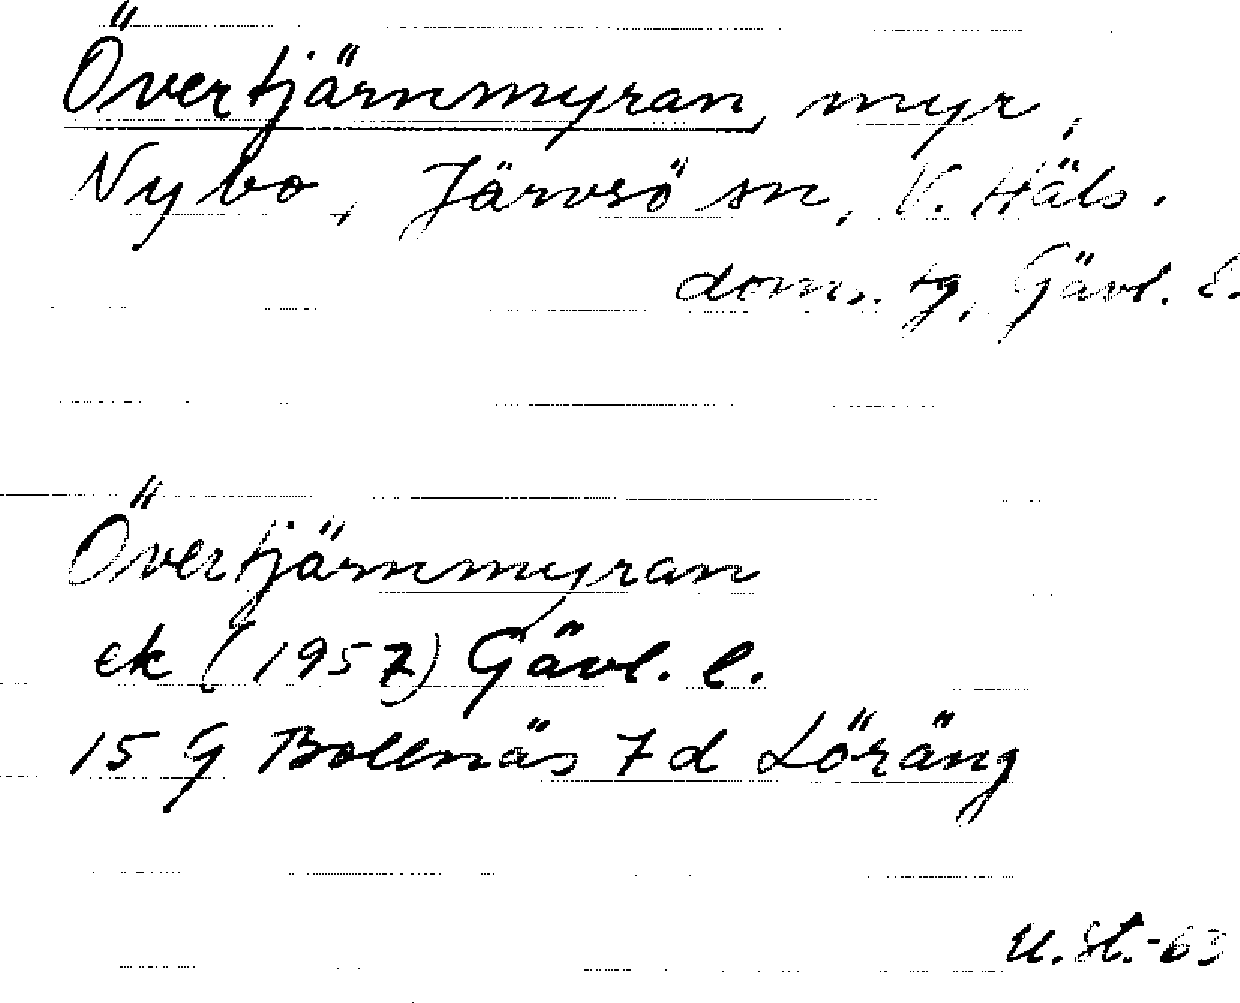 Övertjärnmyran, myr,
Nybo, Järvsö sn, V. Häls.
doms. tg, Gävl. l.
Övertjärnmyran
ek (1957) Gävl. l.
15 G Bollnäs 7d Löräng
U. St.-63